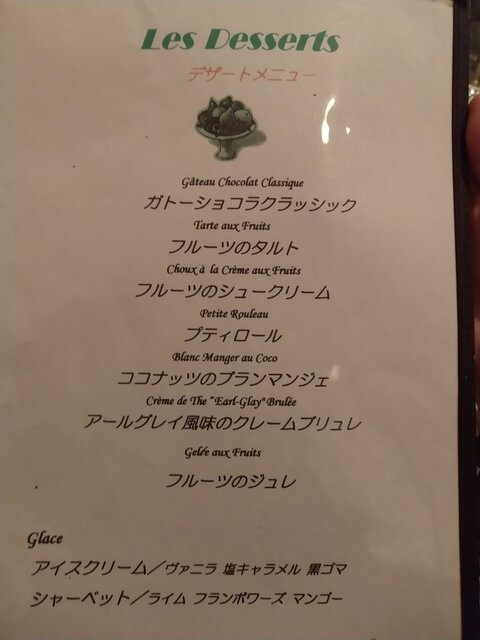 Les Desserts
デザートメニュー
Gâteau Chocolat Classique
ガトーショコラクラッシック
Tarte aux Fruits
フルーツのタルト
Choux à la Crème aux Fruits
フルーツのシュークリーム
Petite Rouleau
プティロール
Blanc Manger au Coco
ココナッツのブランマンジェ
Crème de The "Earl-Glay" Brulée
アールグレイ風味のクレームブリュレ
Gelée aux Fruits
フルーツのジュレ
Glace
アイスクリーム／ヴァニラ 塩キャラメル 黒ゴマ
シャーベット／ライム フランボワーズ マンゴー